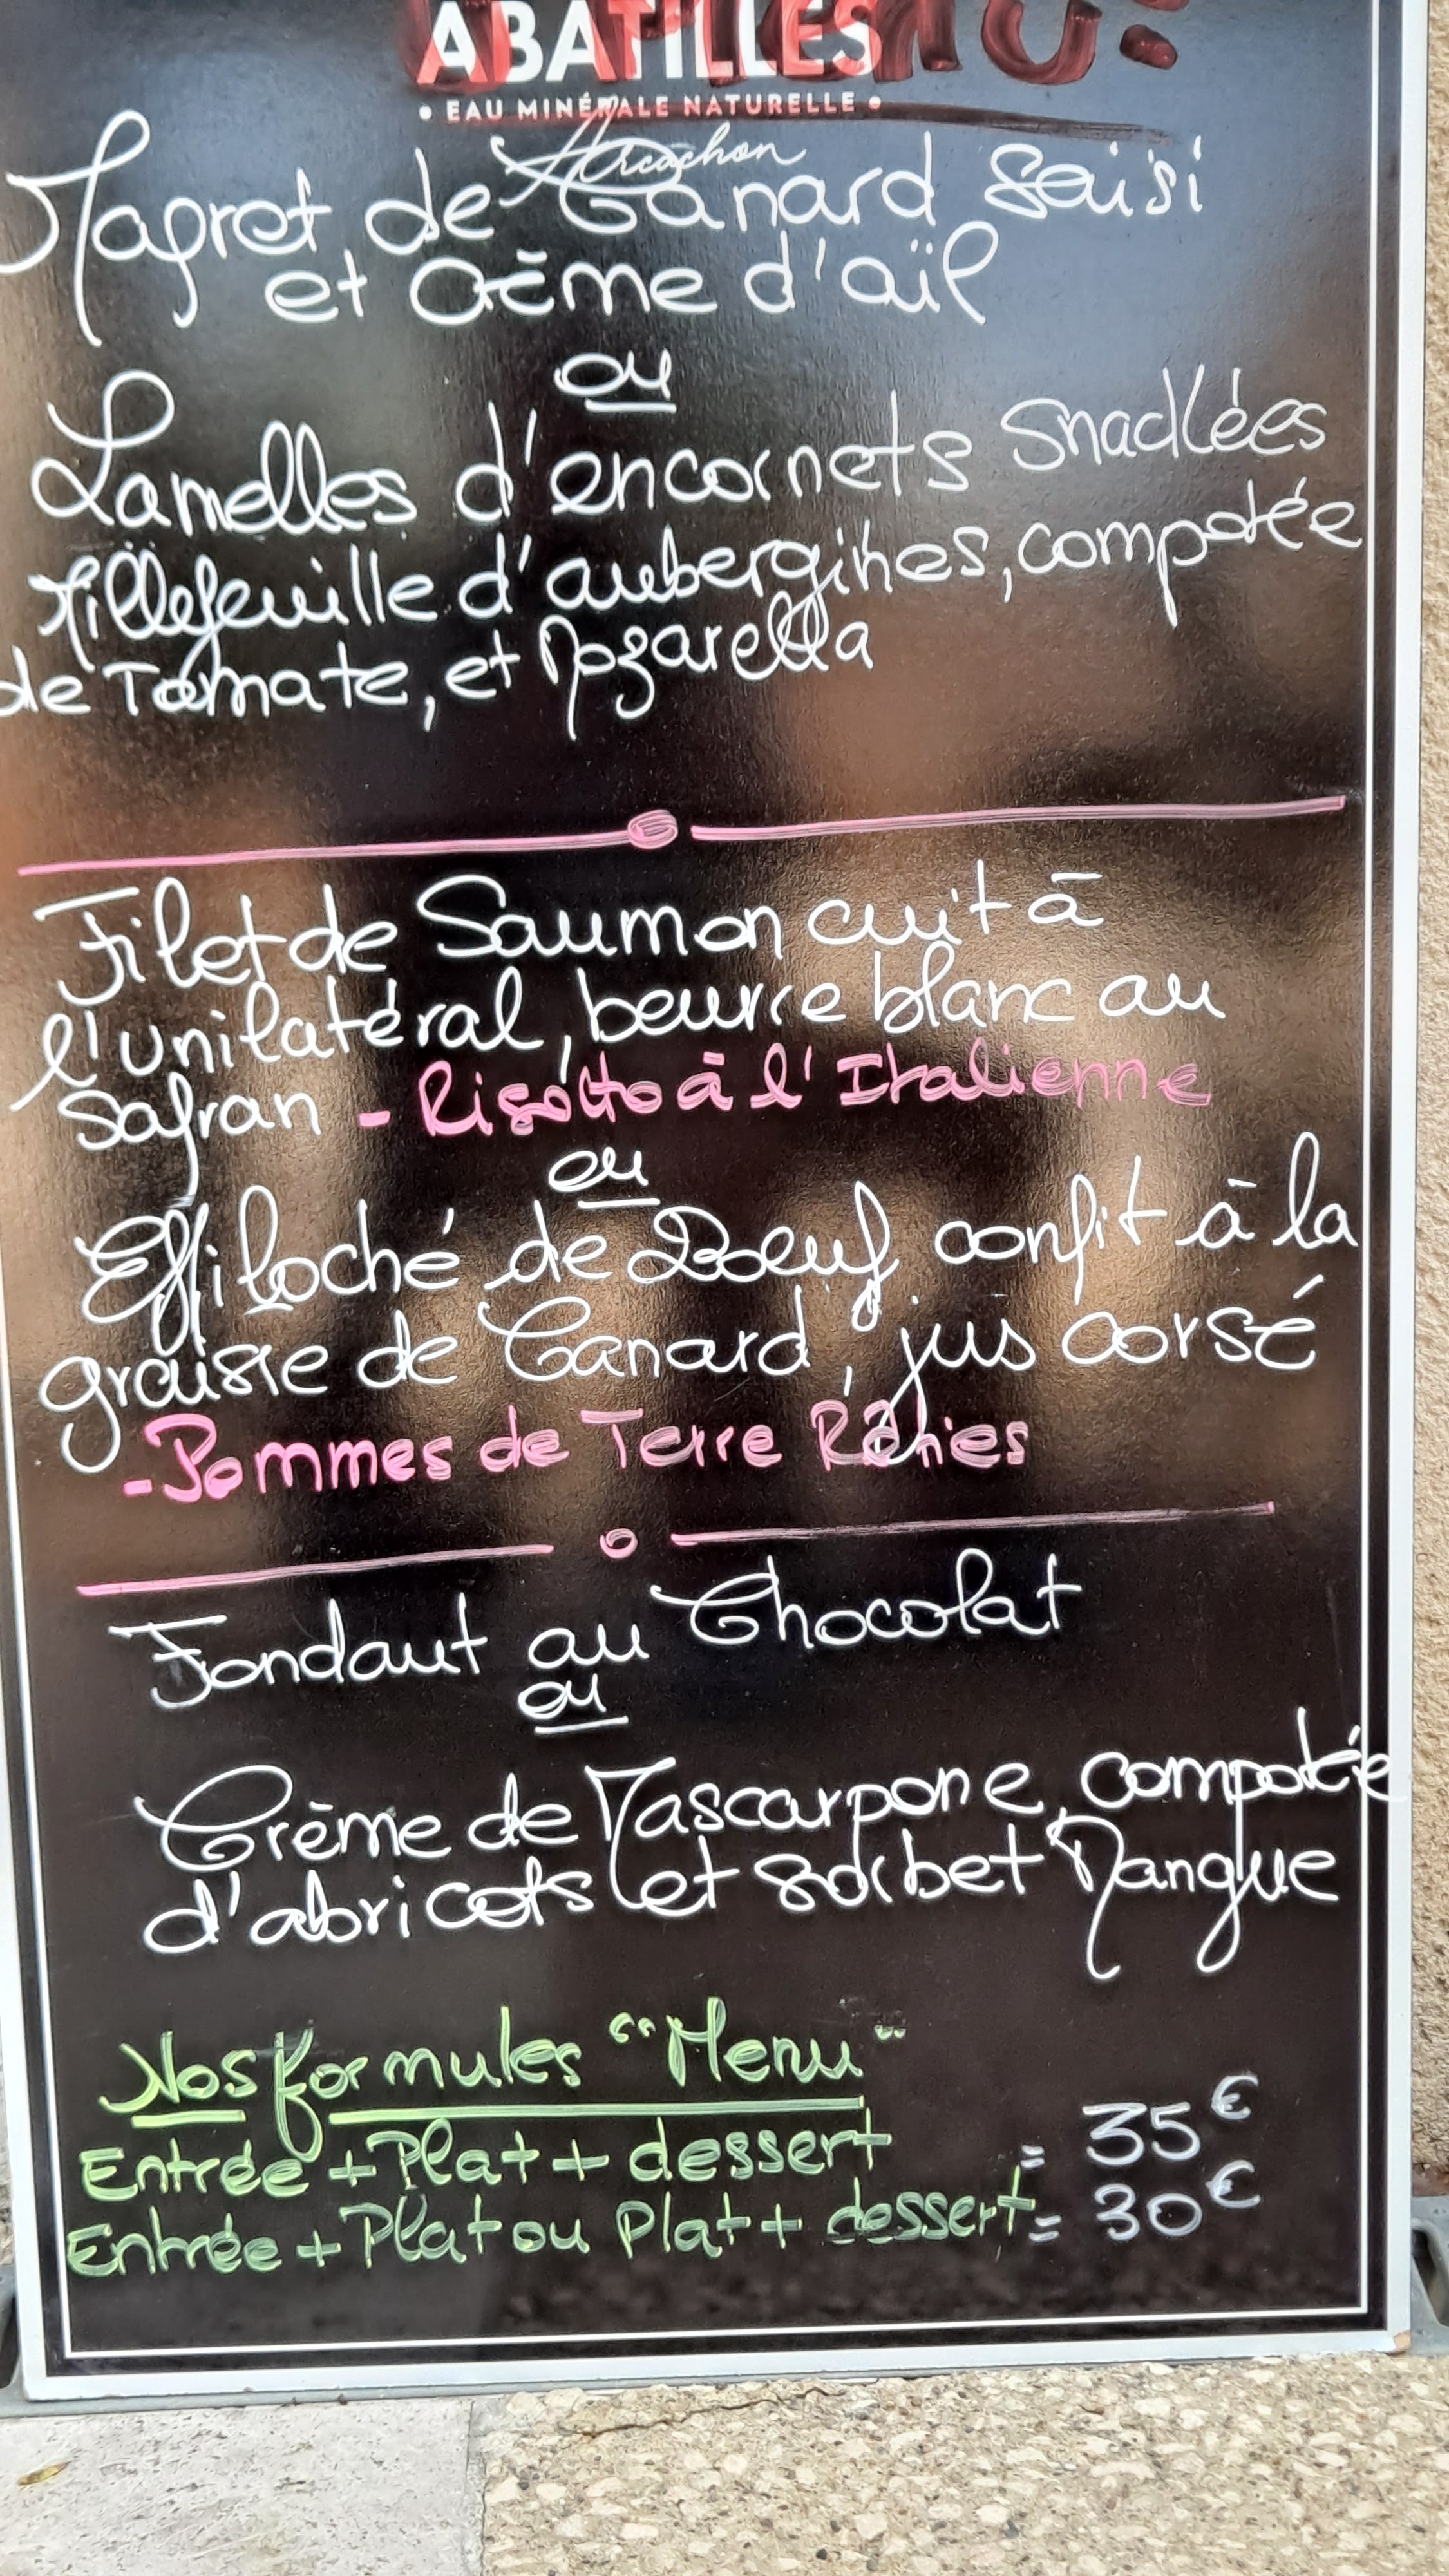 ABATILLES
• EAU MINÉRALE NATURELLE •
Arcachon
Magret de Canard saisi
et Crème d'aïl
ou
Lamelles d'encornets snackées
Millefeuille d'aubergines, compotée
de Tomate, et Mozarella
Filet de Saumon cuit à
l'unilatéral, beurre blanc au
safran - Risotto à l'Italienne
ou
Effiloché de Boeuf confit à la
graisse de Canard, jus corsé
- Pommes de Terre Rôties
Fondaut au Chocolat
ou
Crème de Mascarpone, compotée
d'abricots et sorbet Mangue
Nos formules "Menu"
Entrée + Plat + dessert = 35€
Entrée + Plat ou Plat + dessert = 30€